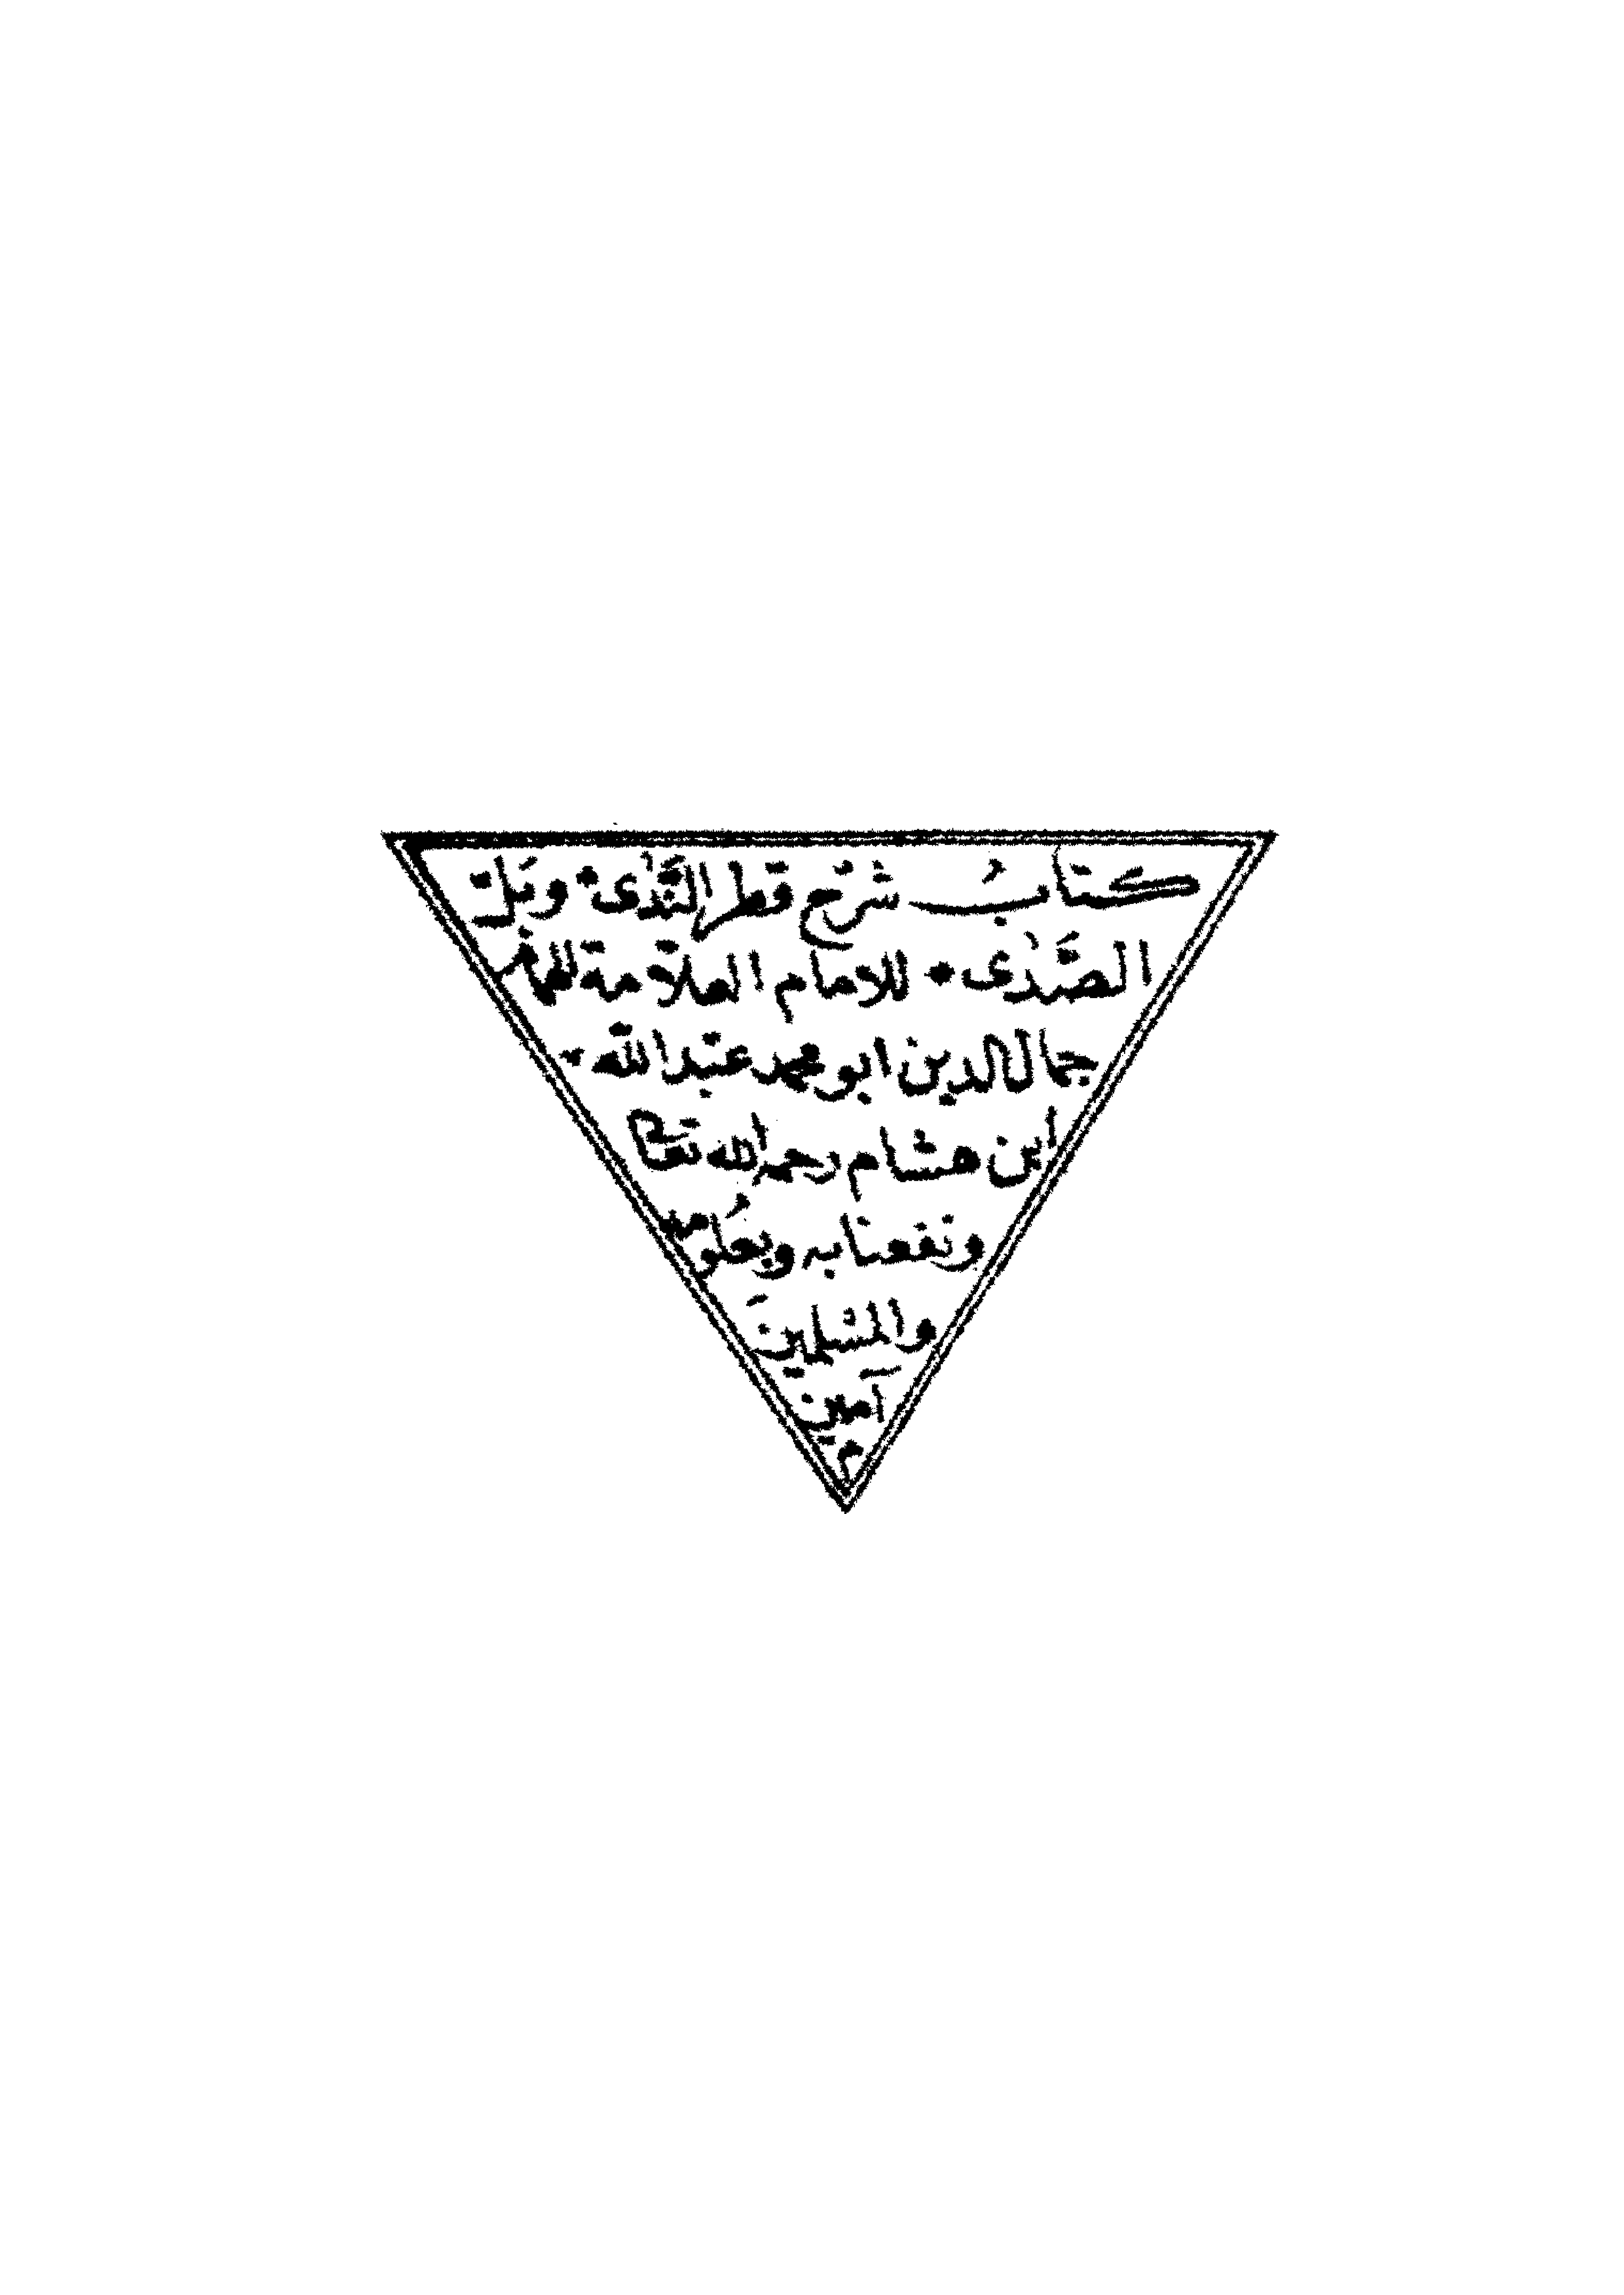 كتابُ شرح قطر النَّدٰى ٠ وبَلّ
الصَّدٰى ٠ للامام العلاّمة الهمام
جمال الدين ابو محمد عبد الله ٠
ابن هشام رحمه الله تعالى
ونفعنا به وبعُلومه
والمسلمينَ
آمين
م